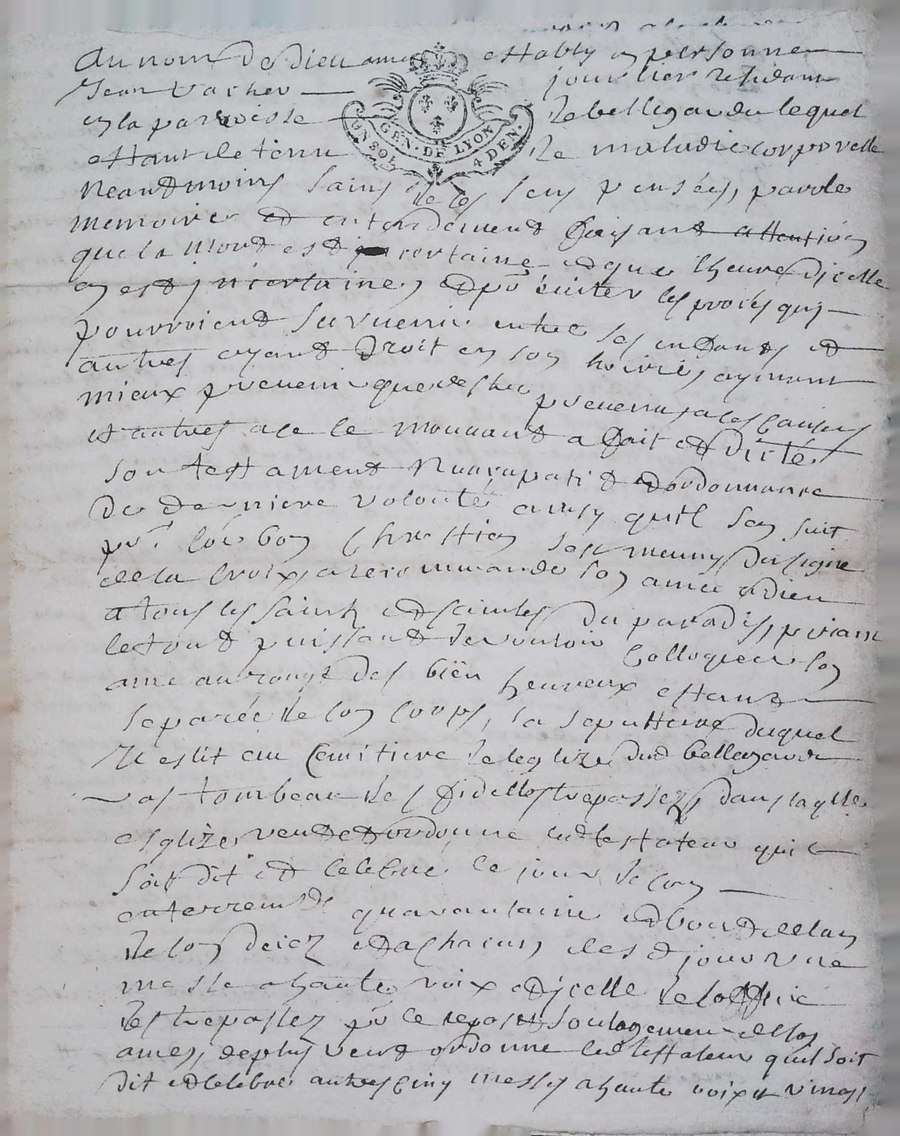 Au nom de dieu amen establÿ en personne
Jean Vacher journlier residant
en la parroisse de bellegarde lequel
GEN. DE LYON
4 DEN.
estant detenu de maladie corporelle
neandmoins sains de ses sens pensées, parole
memoire et entendement faisant attention
que la mort est certaine et que lheure dicelle
en est jncertaine, et pr euiter les proces quj
pourroient suruenir entre ses enfants et
autres ayant droit en son hoirie, aymant
mieux preuenir que destre preuenu a ces causes
et autres a ce le mouuant a fait et dicté
son testament nuncupatif et ordonnance
de derniere volonté ainsy quil sen suit
prt coe bon Chrestien sest muny du signe
de la Croix, a recommandé son ame a dieu
a tous les saints et saintes du paradis, priant
le tout puissant de vouloir Colloquer son
ame au rang des bien heureux estant
separée de son corps, la sepulture duquel
Il eslit au Cemitiere de leglize dud bellegarde
es tombeau des fidelles trepassez, dans laqlle
esglize, veut et ordonne led testateur quil
soit dit et celebré le jour de son
enterrement quarantaine et bout de lan
de son decez et a chacun desd jours une
messe a haute voix et jcelle de loffice
des trepassez pr le repos et soulagement de son
ame, de plus veut et ordonne led testateur quil soit
dit et celebré autres cinq messes a haute voix et vingt